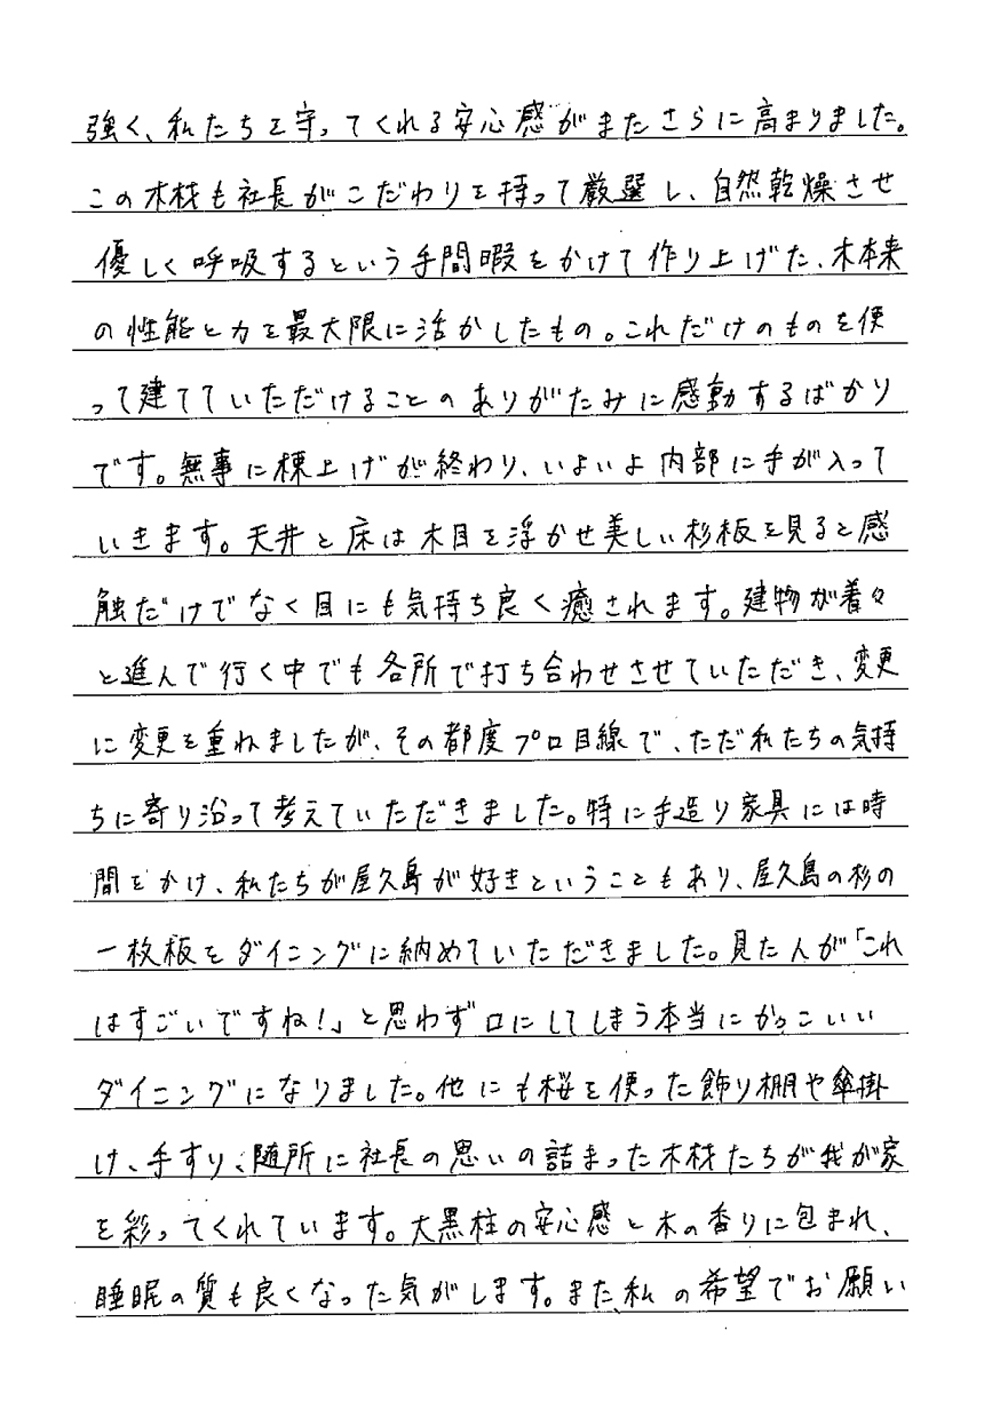 強く、私たちを守ってくれる安心感がまたさらに高まりました。
この木材も社長がこだわりを持って厳選し、自然乾燥させ
優しく呼吸するという手間暇をかけて作り上げた、木本来
の性能と力を最大限に活かしたもの。これだけのものを使
って建てていただけることのありがたみに感動するばかり
です。無事に棟上げが終わり、いよいよ内部に手が入って
いきます。天井と床は木目を浮かせ美しい杉板を見ると感
触だけでなく目にも気持ち良く癒されます。建物が着々
と進んで行く中でも各所で打ち合わせさせていただき、変更
に変更を重ねましたが、その都度プロ目線で、ただ私たちの気持
ちに寄り沿って考えていただきました。特に手造り家具には時
間をかけ、私たちが屋久島が好きということもあり、屋久島の杉の
一枚板をダイニングに納めていただきました。見た人が「これ
はすごいですね!」と思わず口にしてしまう本当にかっこいい
ダイニングになりました。他にも桜を使った飾り棚や傘掛
け、手すり、随所に社長の思いの詰まった木材たちが我が家
を彩ってくれています。大黒柱の安心感と木の香りに包まれ、
睡眠の質も良くなった気がします。また、私の希望でお願い